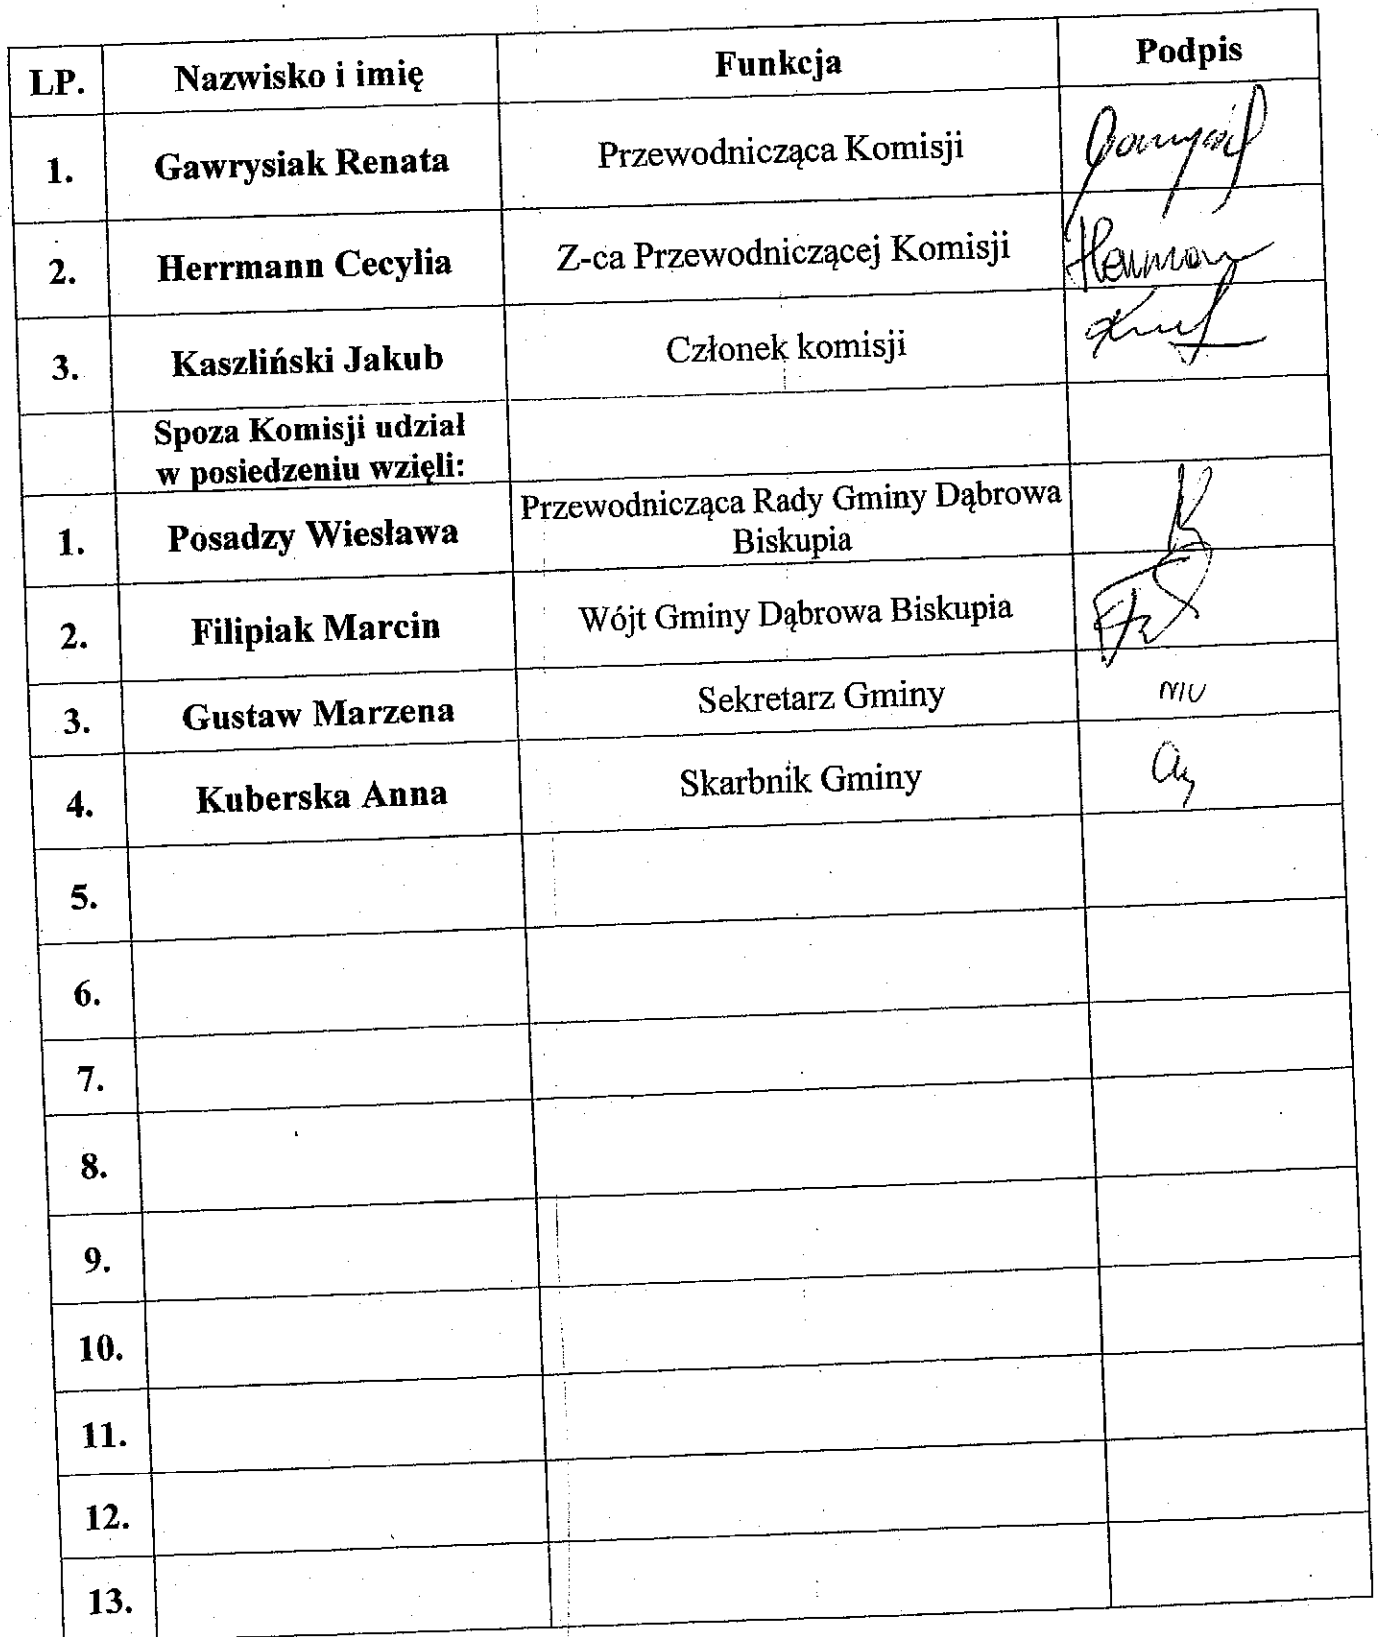 LP. Nazwisko i imię Funkcja Podpis
1. Gawrysiak Renata Przewodnicząca Komisji
2. Herrmann Cecylia Z-ca Przewodniczącej Komisji
3. Kaszliński Jakub Członek komisji
Spoza Komisji udział
w posiedzeniu wzięli:
1. Posadzy Wiesława Przewodnicząca Rady Gminy Dąbrowa
Biskupia
2. Filipiak Marcin Wójt Gminy Dąbrowa Biskupia
3. Gustaw Marzena Sekretarz Gminy
4. Kuberska Anna Skarbnik Gminy
5.
6.
7.
8.
9.
10.
11.
12.
13.